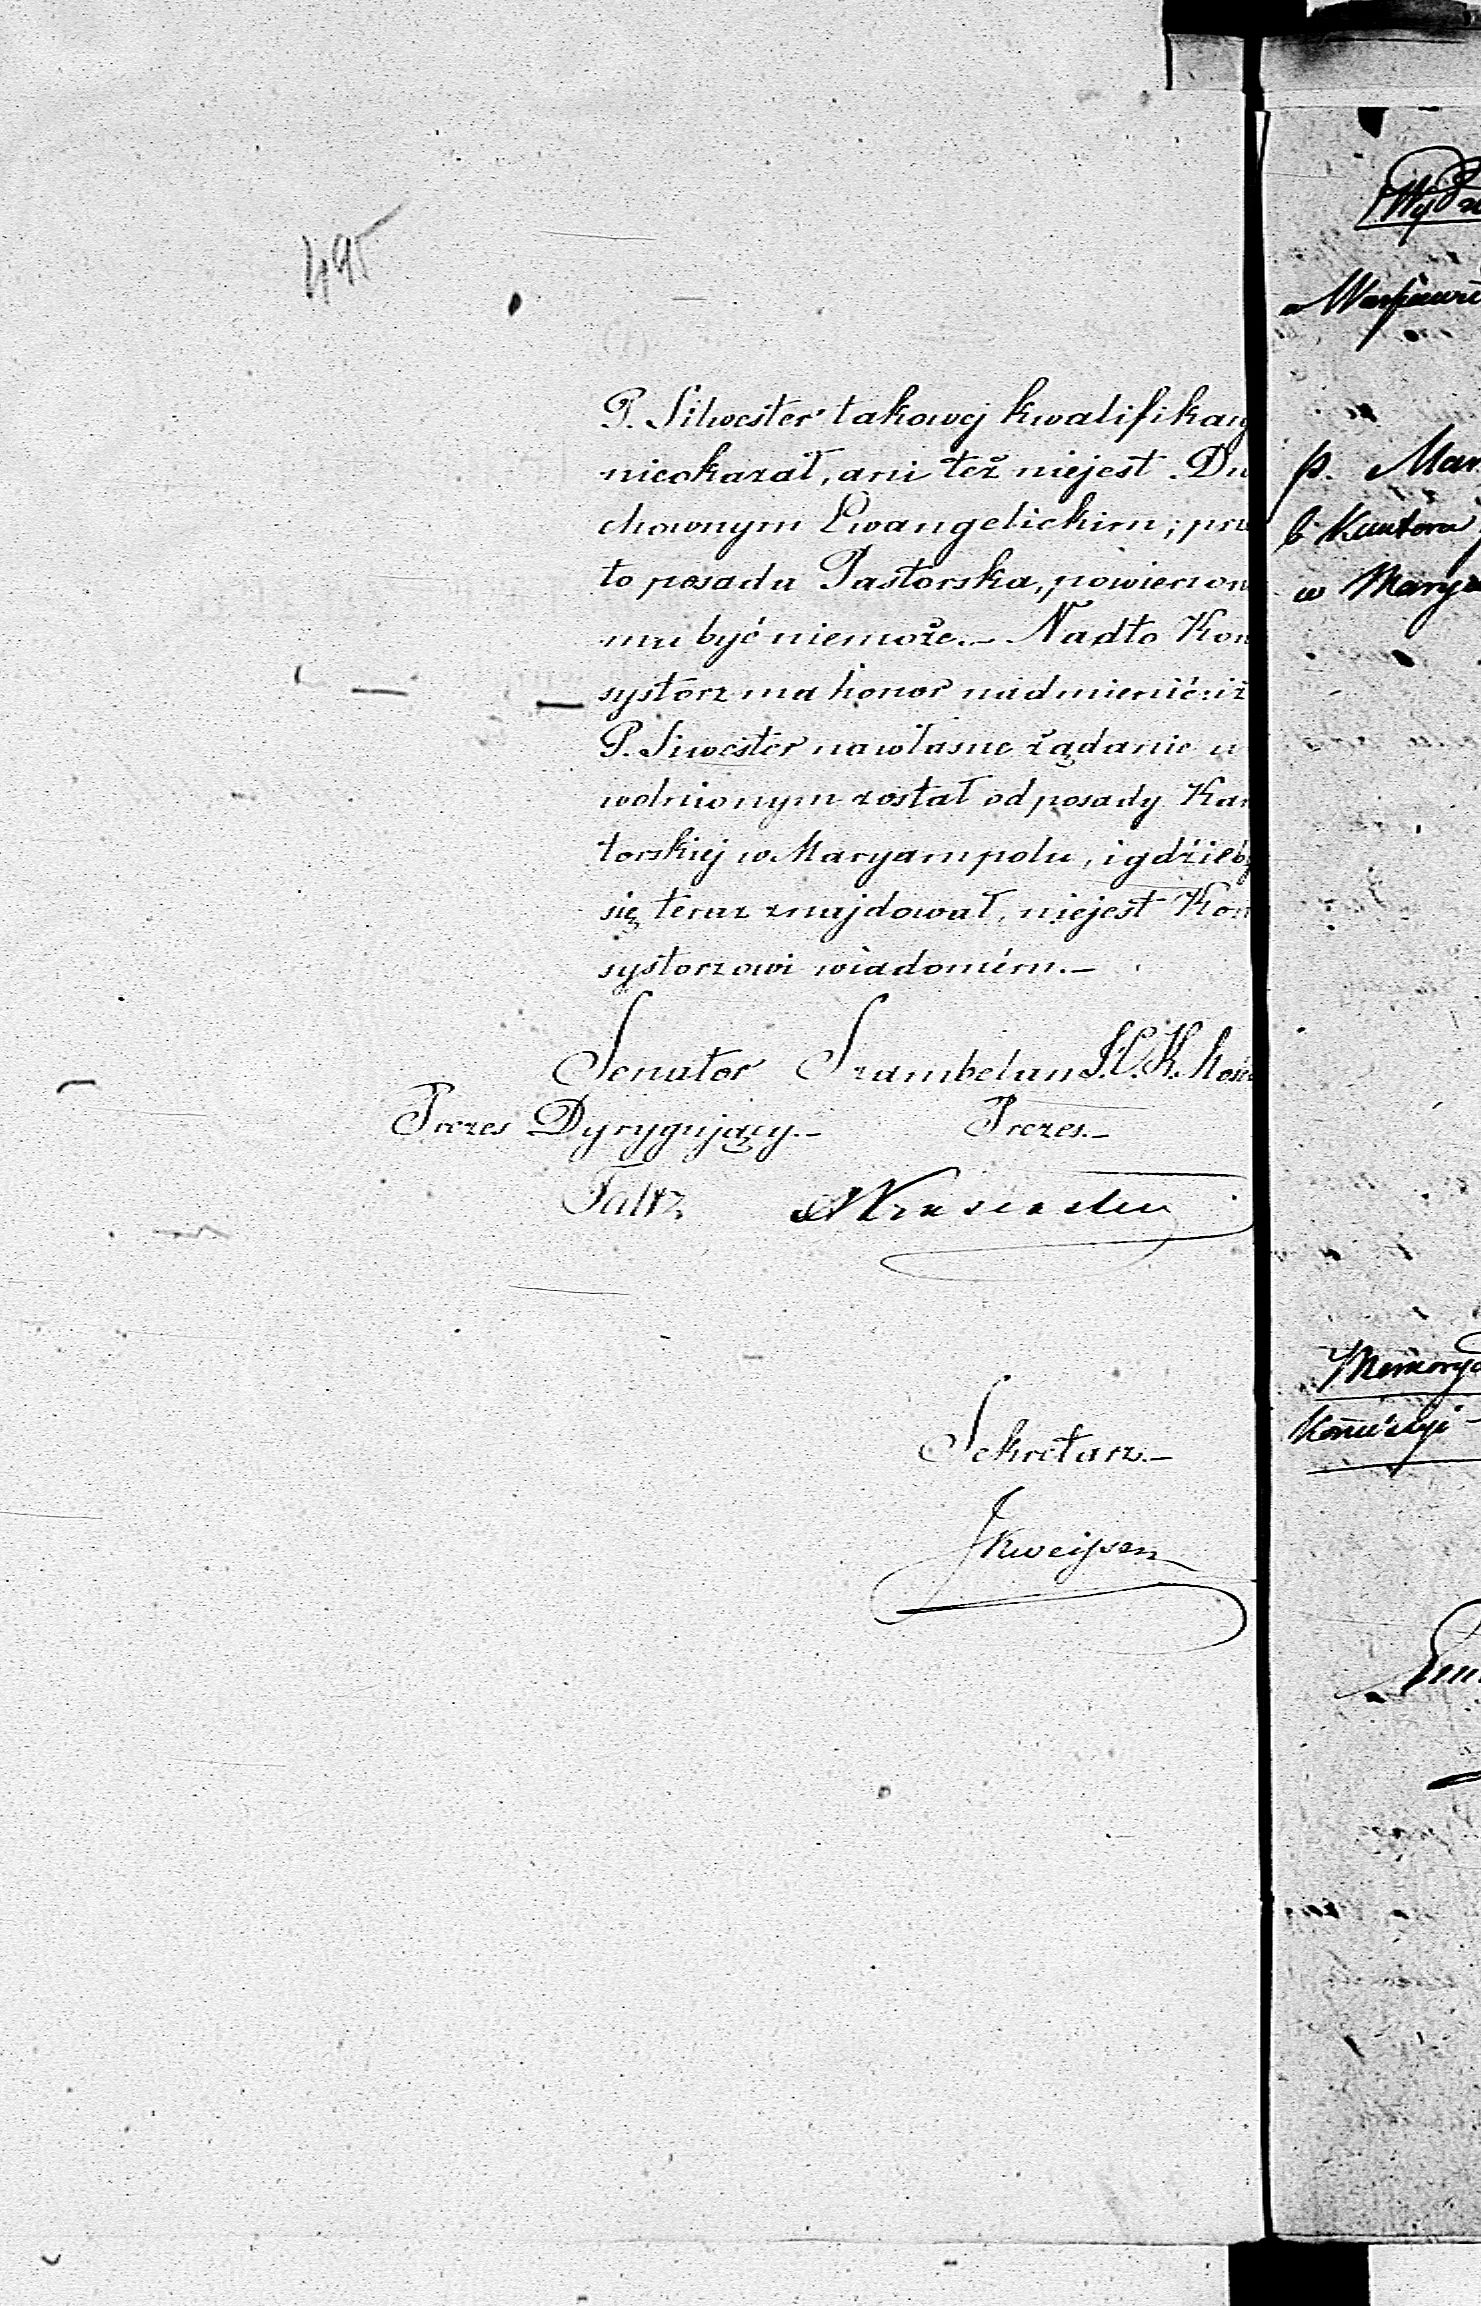 495
P. Silwester takowej kwalifikacy
nieokazał, ani też niejest Du
chownym Ewangelickim; prze
to posada Pastorska, powierzon
mu być niemoże.— Nadto Kon
systorz ma honor nadmienić: iż
P. Siwester na własne żądanie u
wolnionym został od posady Kan
torskiej w Maryampolu, i gdzieby
się teraz znajdował, niejest Kon
systorzowi wiadomém.—
Senator Szambelan J. C. K. Mości
Prezes Dyrygujący.— Prezes.—
Sekretarz.—
Wydz
p. Mar
b. Kantora
w Marya
Memorya